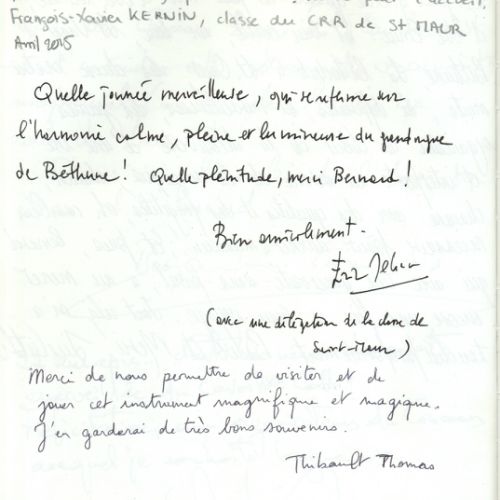 l'accueil,
François-Xavier KERNIN, classe du CRR de St MAUR
Avril 2015
Quelle journée merveilleuse, qui se referme sur
l'harmonie calme, pleine et lumineuse du grand orgue
de Béthune! Quelle plénitude, merci Bernard!
Bien amicalement.
Eric
(avec une délégation de la classe de
Saint-Maur)
Merci de nous permettre de visiter et de
jouer cet instrument magnifique et magique.
J'en garderai de très bons souvenirs.
Thibault Thomas